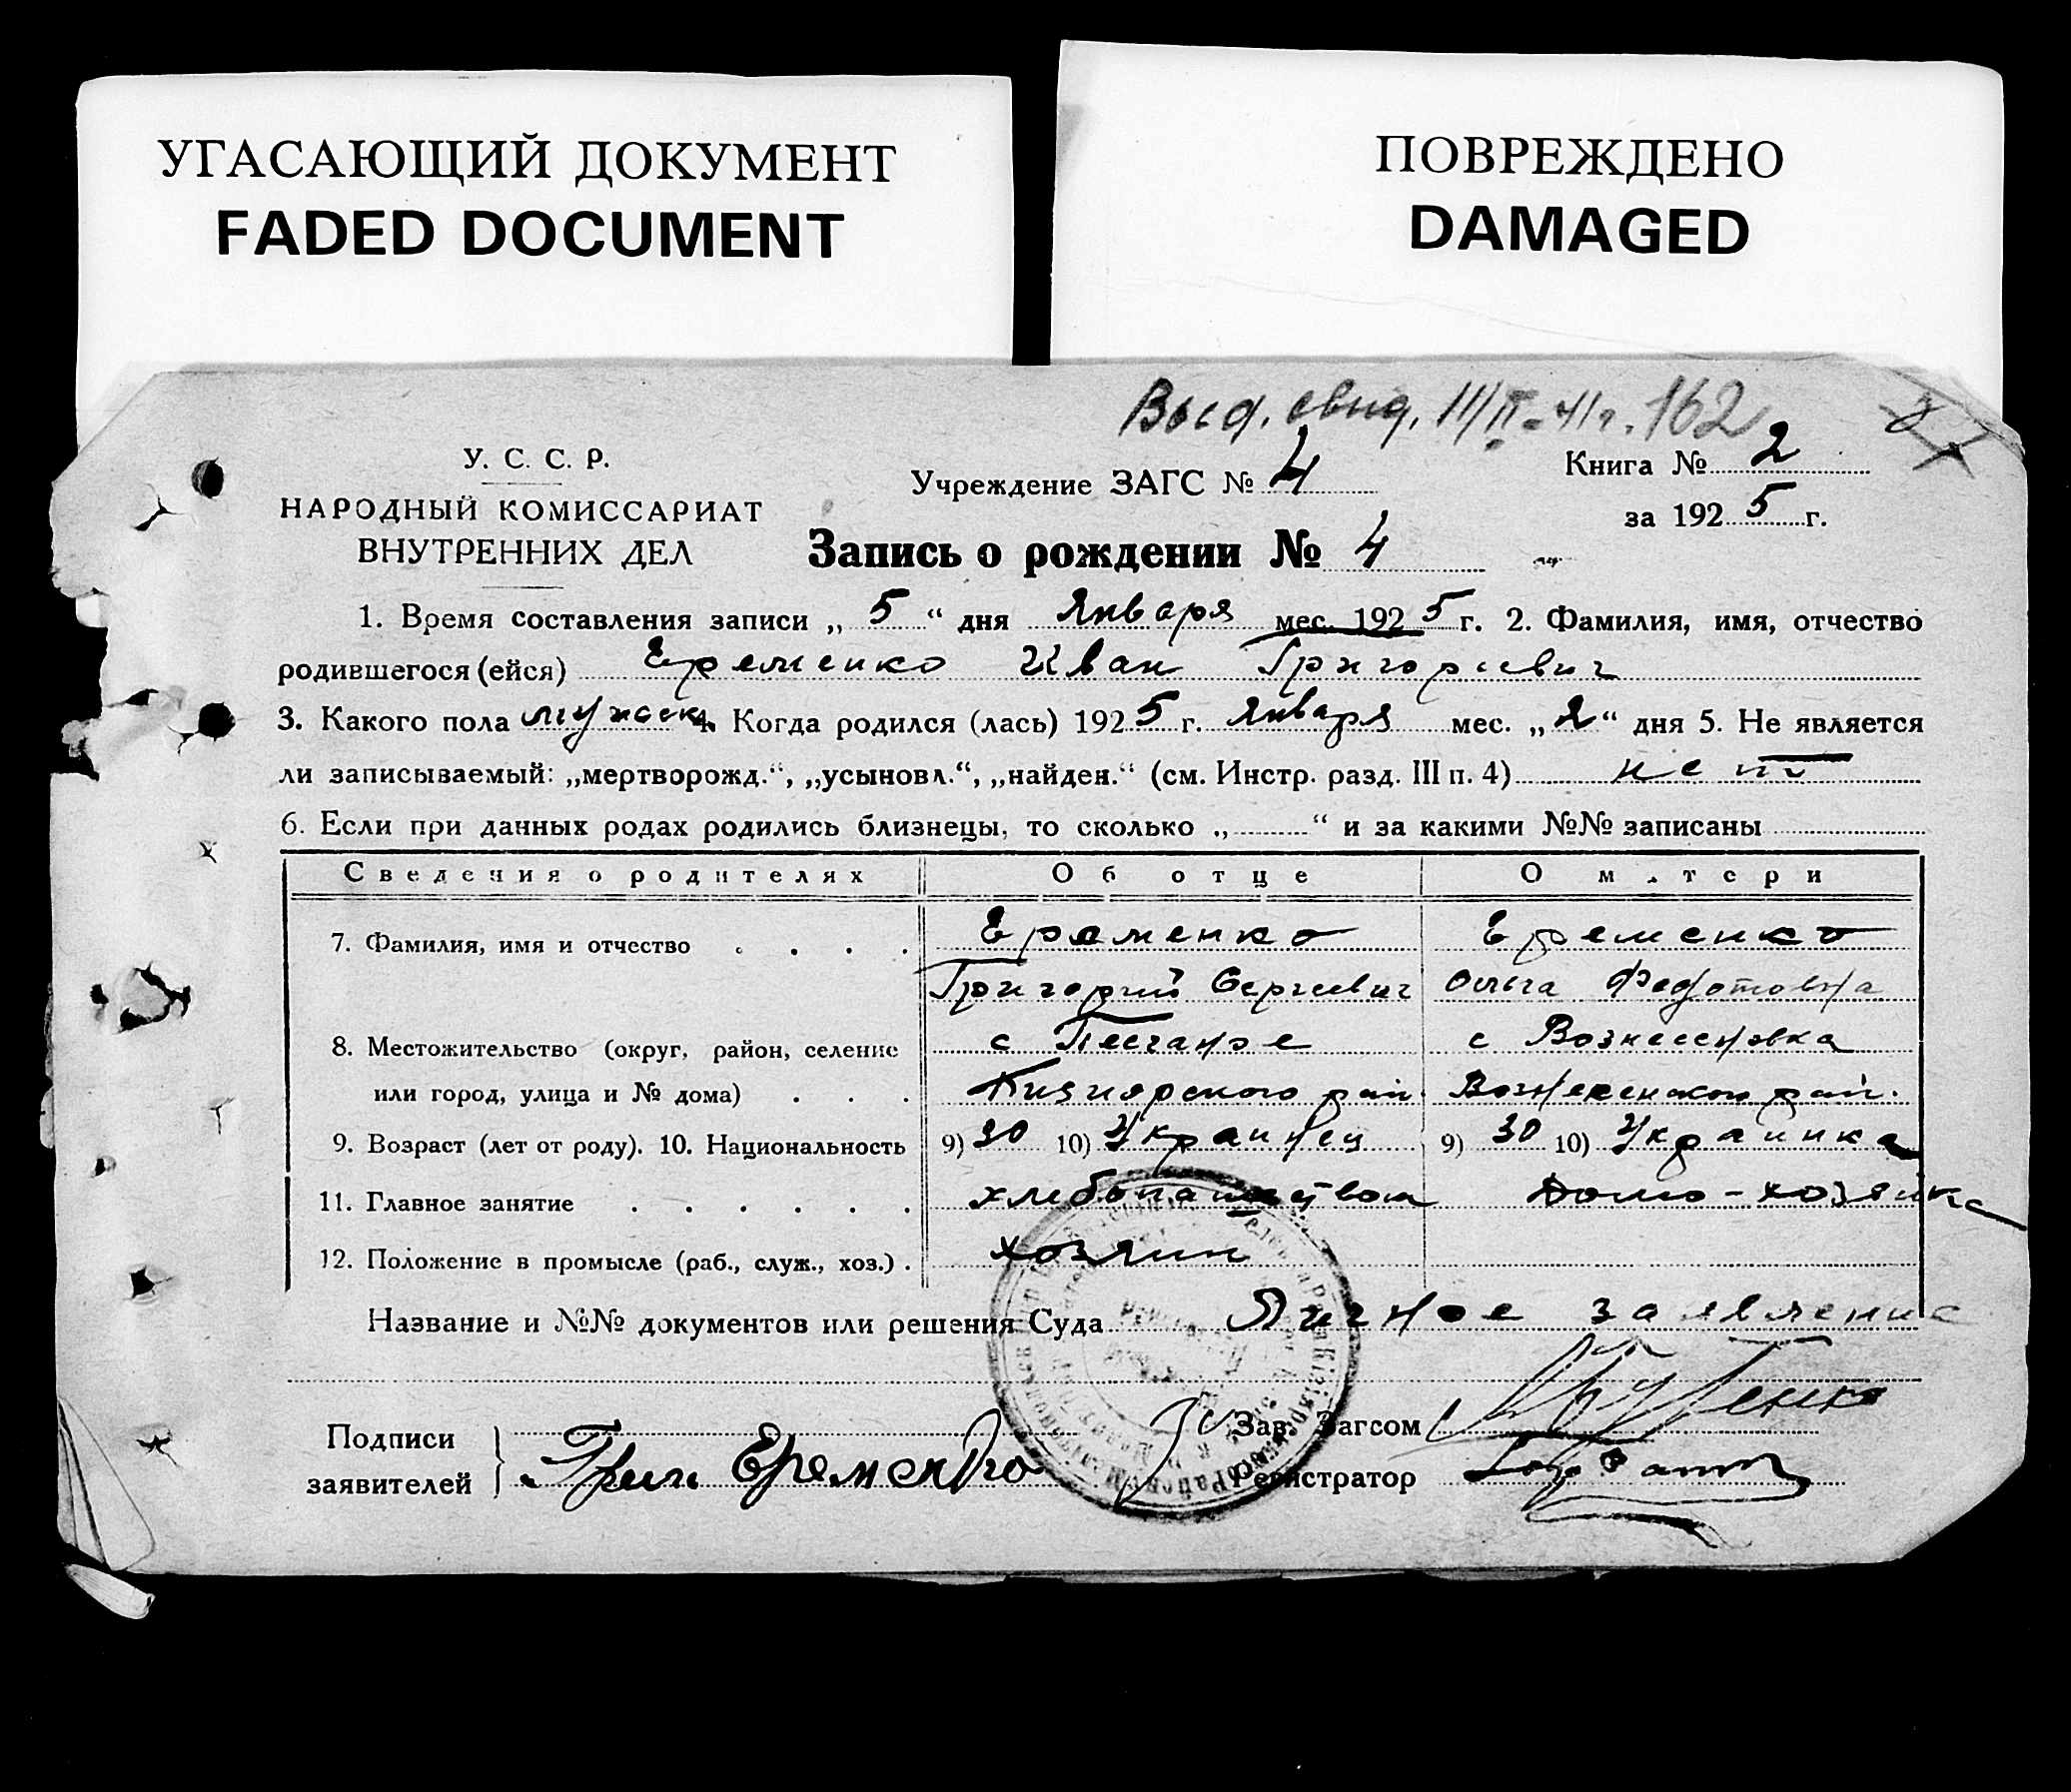 УГАСАЮЩИЙ ДОКУМЕНТ
FADED DOCUMENT
ПОВРЕЖДЕНО
DAMAGED
Выд. свид. 11/II-41г. 162
У. С. С. Р.
НАРОДНЫЙ КОМИССАРИАТ
ВНУТРЕННИХ ДЕЛ
Учреждение ЗАГС № 4
Книга № 2
за 1925 г.
Запись о рождении № 4
1. Время составления записи „5“ дня Января мес. 1925 г. 2. Фамилия, имя, отчество
родившегося (ейся) Еременко Иван Григориевич
3. Какого пола мужск. 4. Когда родился (лась) 1925 г. Января мес. „2“ дня 5. Не является
ли записываемый: „мертворожд.“, „усыновл.“, „найден.“ (см. Инстр. разд. III п. 4) нет
6. Если при данных родах родились близнецы, то сколько „ “ и за какими №№ записаны
Сведения о родителях Об отце О м тери
7. Фамилия, имя и отчество Еременко Еременко
Григорий Сергиевич Ольга Федотовна
8. Местожительство (округ, район, селение с Песчаное с Вознесеновка
или город, улица и № дома) рай. рай.
9. Возраст (лет от роду). 10. Национальность 9) 30 10) Украинец 9) 30 10) Украинка
11. Главное занятие хлебопашеством Домо-хозяйка
12. Положение в промысле (раб., служ., хоз.) хозяин
Название и №№ документов или решения Суда Личное заявление
Подписи
заявителей
Григ Еременко
Зав. Загсом
Регистратор